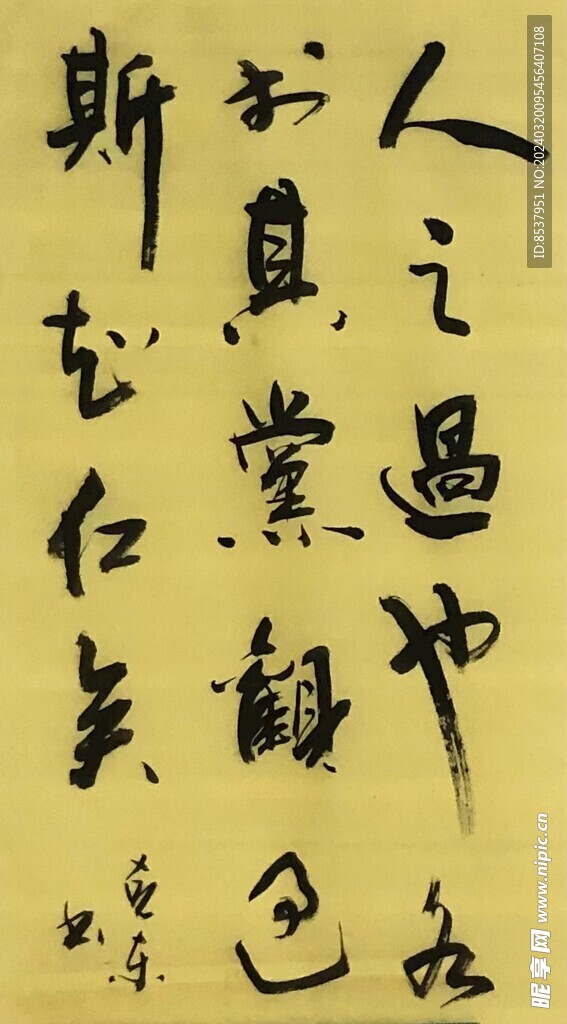 人之過也各
於其黨觀過
斯知仁矣
克东
书
ID:8537951 NO:20240320095456407108
昵享网 www.nipic.cn